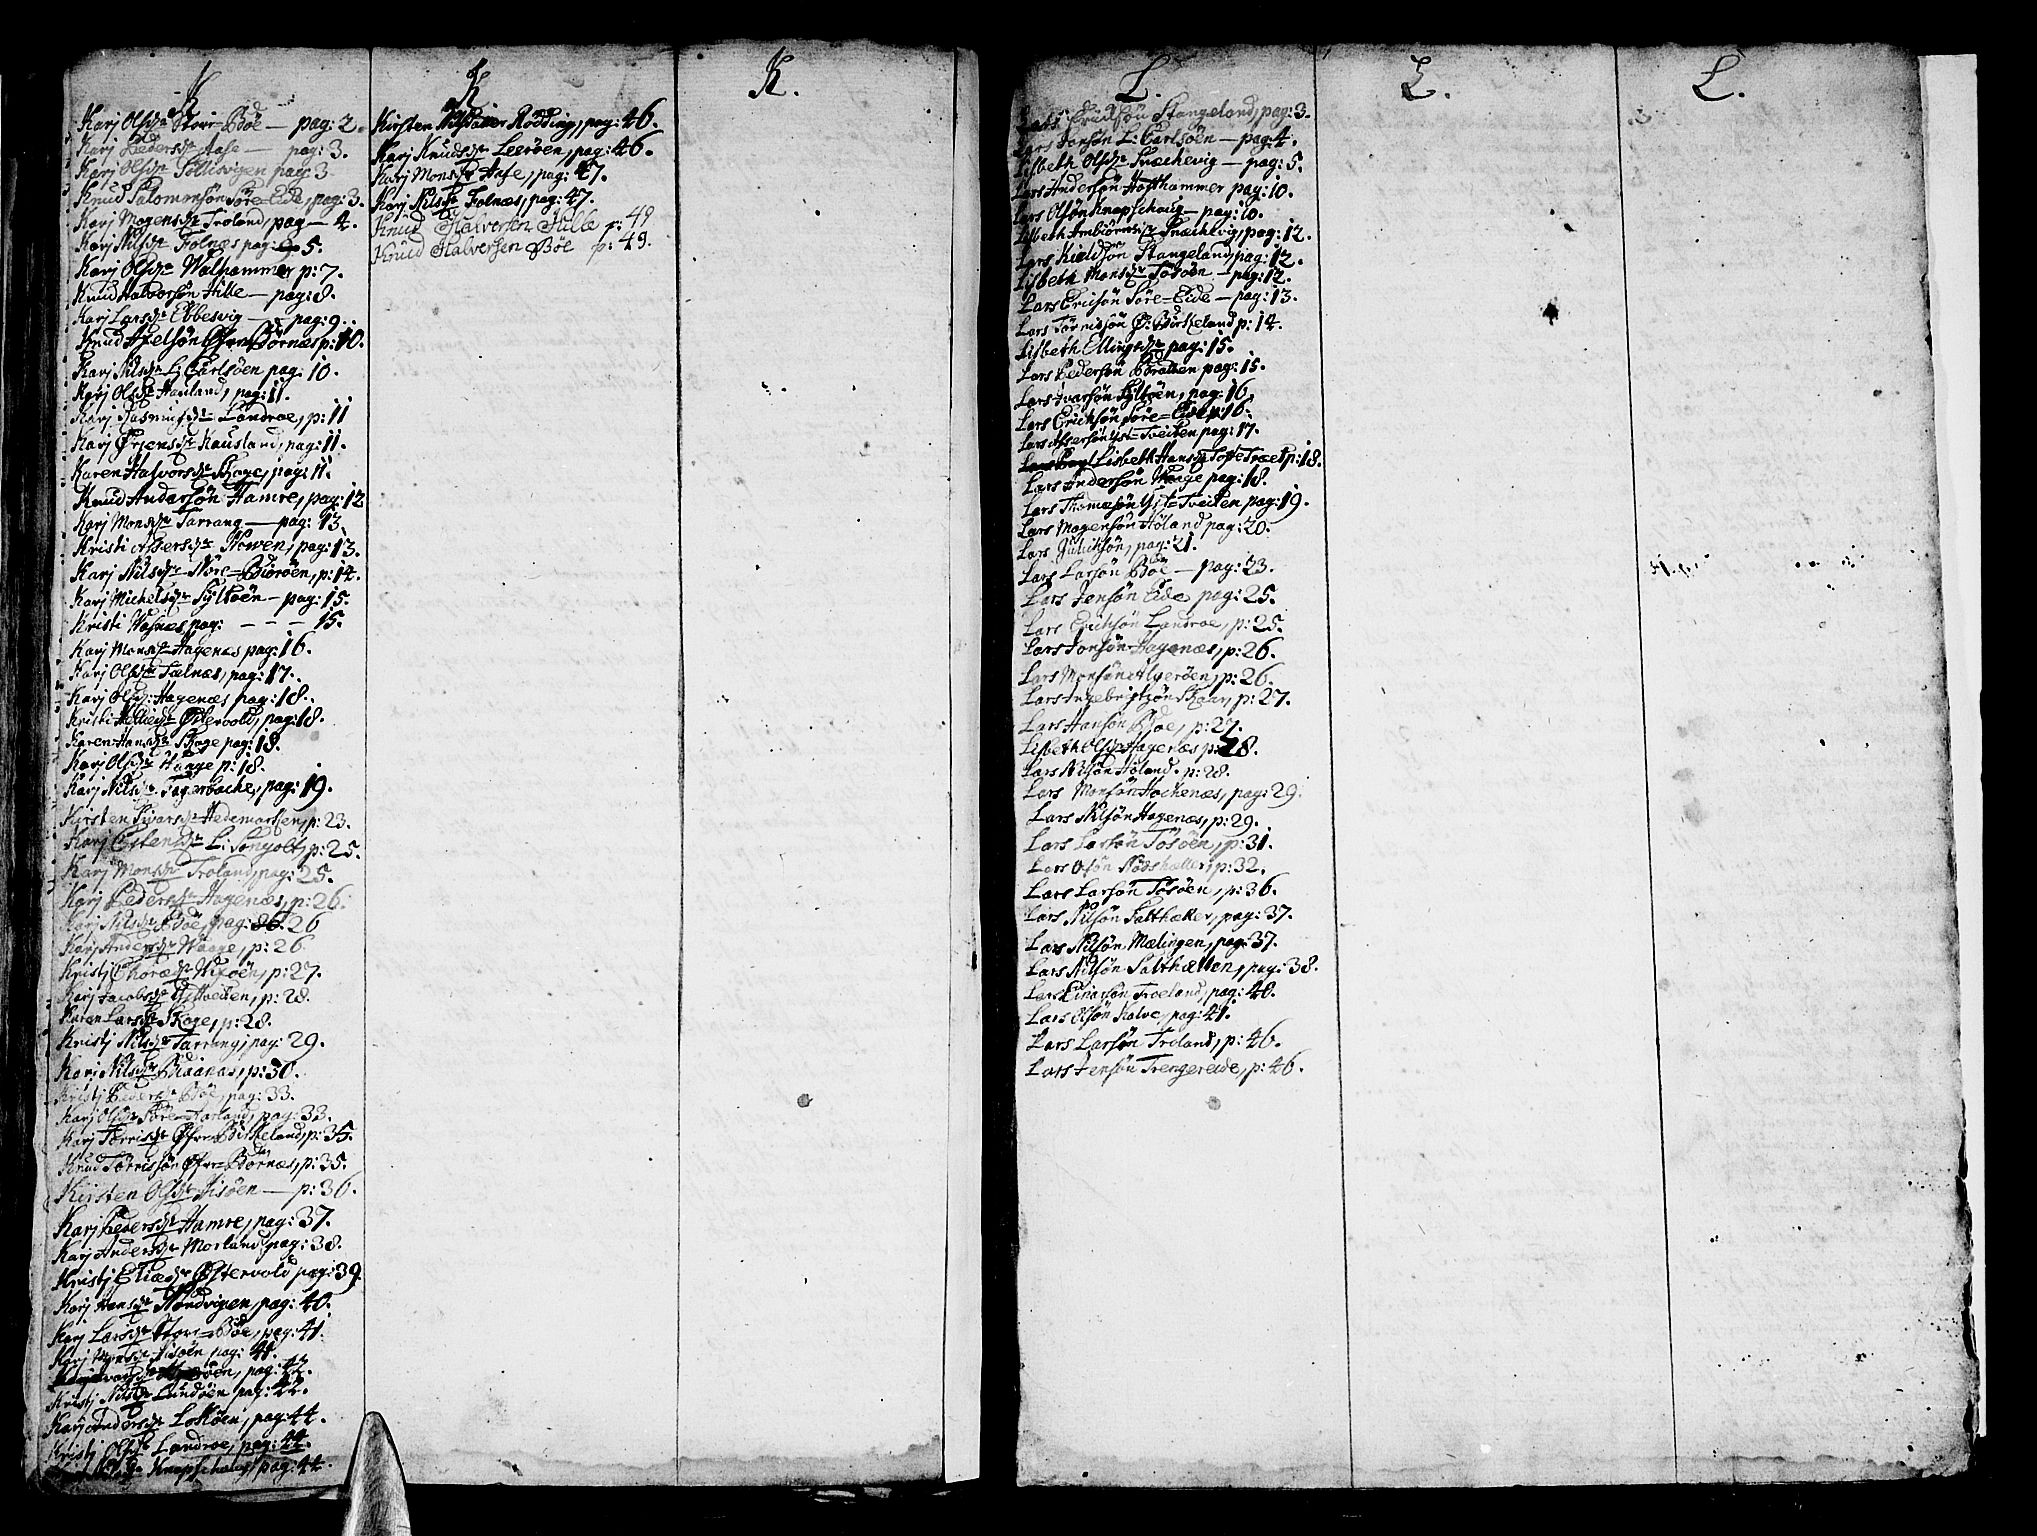 K
Karj Olsdr Stori=Böe — pag: 2.
Karj Pedersdr Aase — pag: 3.
Karj Olsdr Tollisvigen pag: 3
Knud Salomonsön Söre=Eide, pag: 3.
Karj Mogensdr Troland, pag — 4.
Karj Nilsdr Folnæs pag: 5.
Karj Olsdr Walhammer p: 7.
Knud Halvorsön Hille — pag: 8.
Karj Larsdr Ebbesvig — pag: 9.
Knud Axelsön Öfre Börnæs p: 10.
Karj Nilsdr L: Carlsöen pag: 10.
Karj Olsdr Haaland, pag: 11.
Karj Rasmusdr Landroe, p: 11
Karj Örjensdr Kausland, pag: 11.
Karen Halvorsdr Skoge, pag: 11.
Knud Andersön Hamre, pag: 12
Karj Monsdr Tarrang — pag: 13.
Kristi Assersdr Howen, pag: 13.
Karj Nilsdr Nore=Biöröen, p: 14.
Karj Michelsdr Syltöen — pag: 15.
Kristi Wosnæs pag: — — — 15.
Karj Monsdr Hagenæs pag: 16.
Karj Olsdr Tælnæs, pag: 17.
Karj Olsd: Hagenæs pag: 18.
Kristi Östervold, pag: 18.
Karen Hansdr Skoge pag: 18.
Karj Olsdr Hange p: 18.
Karj Nilsd: Fagerbache, pag: 19.
Kirsten Iwarsdr Hedemarken, p: 23.
Karj Östensdr L: Songolt, p: 25.
Karj Monsdr Troland, pag: 25.
Karj Pedersdr Hagenæs, p: 26.
Karj Nilsdr Böe, pag: 26
Karj Andersdr Waage, p: 26
Kristj Thoresdr Wixöen, p: 27.
Karj Jacobsdr Tveiten, p: 28.
Karen Larsdr Skoge, p: 28.
Kristj Nilsdr Tarrang, pag: 29.
Karj Nilsdr Blaanæs, p: 30.
Kristj Pedersdr Böe, pag: 33.
Karj Olsdr Söre=Harland, pag: 33.
Karj Törrisdr Öfre=Birkeland, p: 35.
Knud Törrissön Öfre=Börnæs, p: 35.
Kirsten Olsdr Wisöen — p: 36.
Karj Pedersdr Hamre, pag: 37.
Karj Andersdr Morland pag: 38.
Kristj Eliædr Östervold pag: 39.
Karj Hansdr Nordvigen, pag: 40.
Karj Larsdr Stori=Böe, pag: 41.
Karj Monsdr Wisöen pag: 41.
Karj Ivarsdr Algeröen, pag: 42.
Kristj Nilsdr Lundöen pag: 42.
Karj Andersdr Loköen, pag: 44.
Kristj Olsdr Landroe, pag: 44.
Knapschoug, pag: 44.
K
Kirsten Nilsdatter Rödding, pag: 46.
Karj Knudsdr Leeröen, pag: 46.
Karj Monsdr Aase, pag: 47.
Karj Nilsdr Folnæs, pag: 47.
Knud Halversen Hille p: 49
Knud Halversen Böe p: 49.
K.
L.
Lars Ericksön Stangeland, pag: 3.
Lars Jonsön L: Carlsöen — pag: 4.
Lisbeth Olsdr Snæchevig — pag: 5.
Lars Andersön Hofthammer pag: 10.
Lars Olsön Knapschoug — pag: 10.
Lisbeth Ambiörnsdr Snæchevig, pag: 12.
Lars Kieldsön Stangeland, pag: 12.
Lisbeth Monsdr Tösöen — pag: 12.
Lars Ericsön Söre=Eide — pag: 13.
Lars Törrissön Ö: Birkeland p: 14.
Lisbeth Ellingsdr pag: 15.
Lars Pedersön Bratten pag: 15.
Lars Ivarsön Syltöen, pag: 16.
Lars Ericksön Söre=Eide p: 16.
Lars Assersön Yst=Tveiten pag: 17.
Lisbeth Hansdr Tofte Træet p: 18.
Lars Andersön Waage pag: 18.
Lars Thomasön Yst=Tveiten pag: 19.
Lars Mogensön Höland pag: 20.
Lars Juliksön, pag: 21.
Lars Larsön Böe — pag: 23.
Lars Jensön Eide pag: 25.
Lars Ericksön Landroe, p: 25.
Lars Jonsön Hagenæs, p: 26.
Lars Monsön Algeröen, p: 26.
Lars Ingebrigtsön Skaar, p: 27.
Lars Hansön Böe, p: 27.
Lisbeth Olsdr Hagenæs p: 28.
Lars Nilsön Höland. p: 28.
Lars Monsön Hochenæs, pag: 29.
Lars Nilsön Hagenæs, p: 29.
Lars Larsön Tösöen, p: 31.
Lars Olsön Nödsheller, p: 32.
Lars Larsön Tösöen, p: 36.
Lars Nilsön Salthæller, pag: 37.
Lars Nilsön Mælingen, pag: 37.
Lars Nilsön Salthællen, pag: 38.
Lars Einarsön Troeland, pag: 40.
Lars Olsön Kalve, pag: 41.
Lars Larsön Troland, p: 46.
Lars Jensön Trengereide, p: 46.
L.
L.